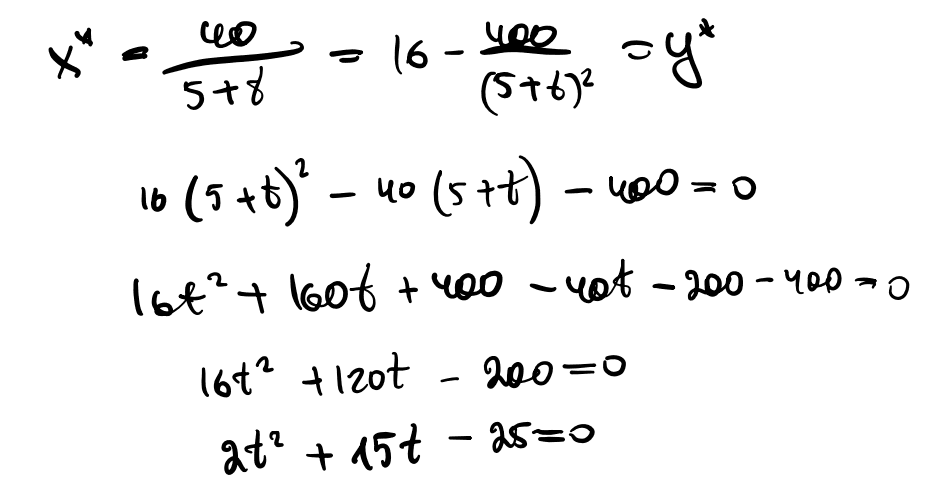 x* = 40/(5+t) = 16 - 400/(5+t)² = y*
16(5+t)² - 40(5+t) - 400 = 0
16t² + 160t + 400 - 40t - 200 - 400 = 0
16t² + 120t - 200 = 0
2t² + 15t - 25 = 0